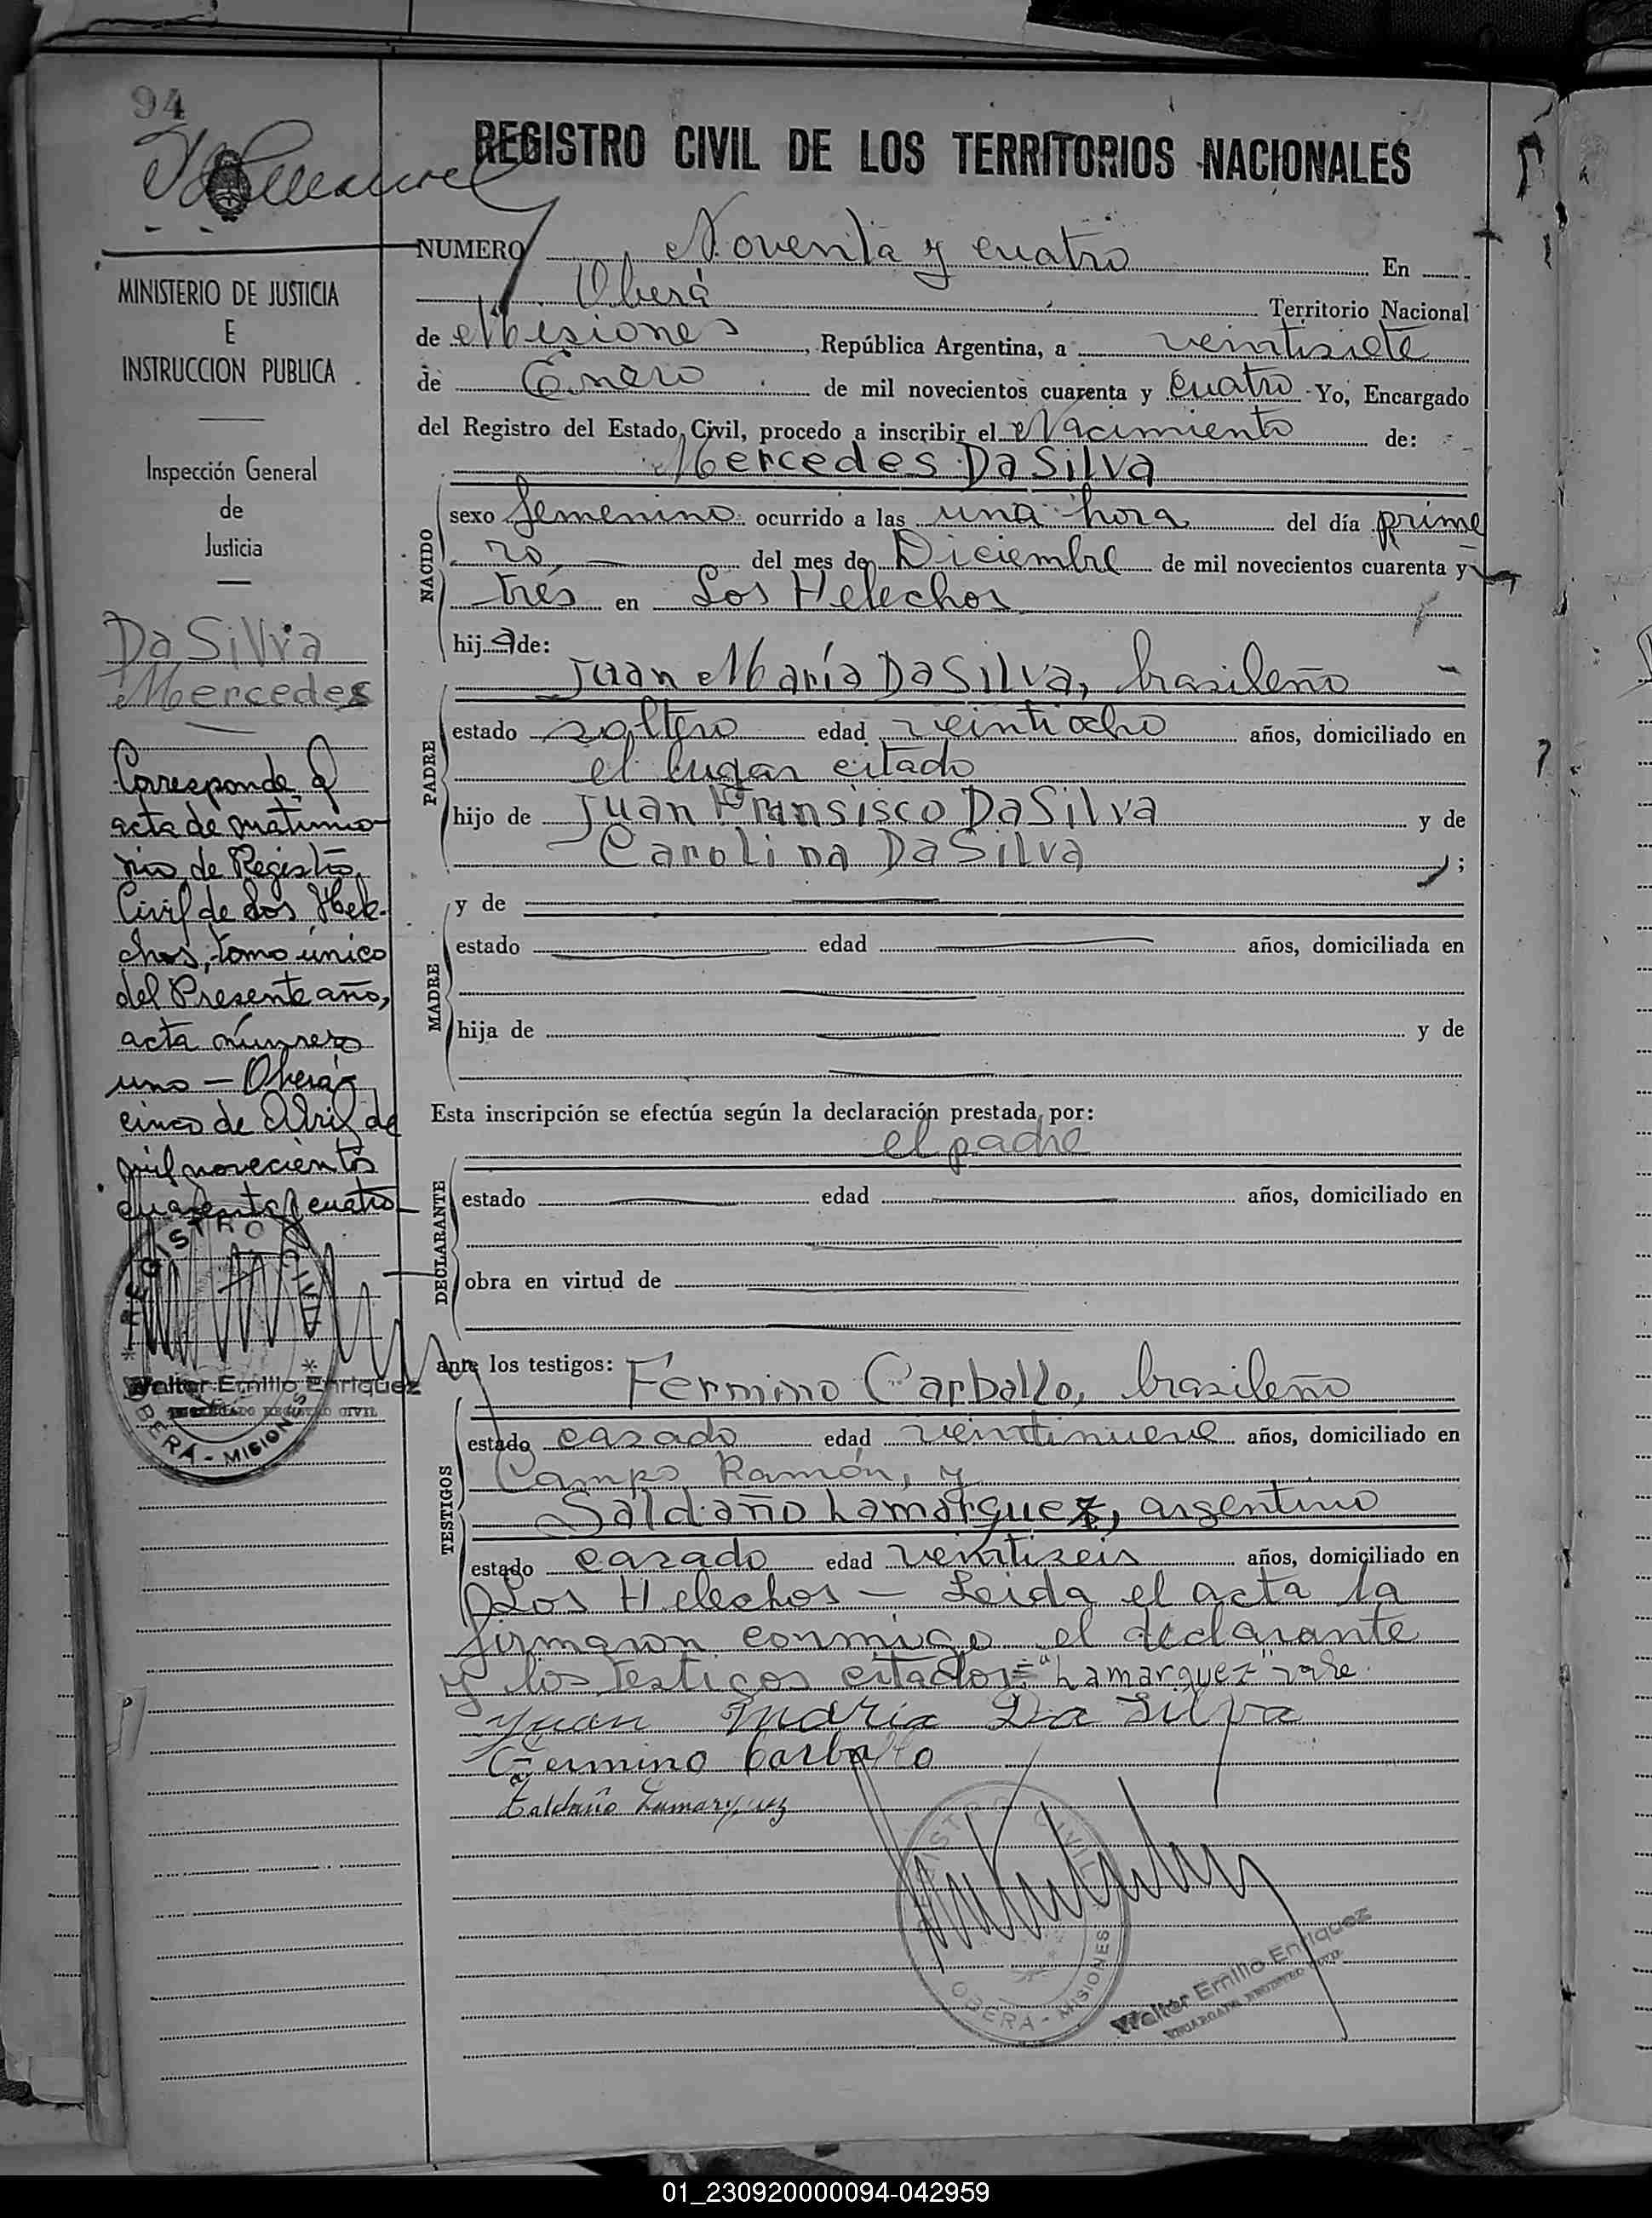 94
REGISTRO CIVIL DE LOS TERRITORIOS NACIONALES
NUMERO Noventa y cuatro En
Oberá Territorio Nacional
de Misiones, República Argentina, a veintisiete
de Enero de mil novecientos cuarenta y cuatro Yo, Encargado
del Registro del Estado Civil, procedo a inscribir el Nacimiento de:
Mercedes DaSilva
NACIDO
sexo femenino ocurrido a las una hora del día prime
ro, del mes de Diciembre de mil novecientos cuarenta y
tres en Los Helechos
hija de:
PADRE
Juan María DaSilva, brasileño
estado soltero edad veintiocho años, domiciliado en
el lugar citado
hijo de Juan Fransisco DaSilva y de
Carolina DaSilva ;
MADRE
y de
estado edad años, domiciliada en
hija de y de
Esta inscripción se efectúa según la declaración prestada por:
el padre
DECLARANTE
estado edad años, domiciliado en
obra en virtud de
ante los testigos: Fermino Carballo, brasileño
TESTIGOS
estado casado edad veintinueve años, domiciliado en
Campo Ramón, y
Saldaño Lamarguez, argentino
estado casado edad veintiseis años, domiciliado en
Los Helechos — Leida el acta la
firmaron conmigo el declarante
y los testigos citados = "Lamarguez" vale.
Juan Maria Da Silva
Fermino Carballo
Saldaño Lamarguez
REGISTRO CIVIL
OBERA - MISIONES
Walter Emilio Enriquez
ENCARGADO REGISTRO CIVIL
MINISTERIO DE JUSTICIA
E
INSTRUCCION PUBLICA
Inspección General
de
Justicia
DaSilva
Mercedes
Corresponde al
acta de matrimo-
nio de Registro
Civil de Los Hele-
chos, tomo único
del Presente año,
acta número
uno — Oberá,
cinco de Abril de
mil novecientos
cuarenta y cuatro
REGISTRO CIVIL
OBERA - MISIONES
Walter Emilio Enriquez
ENCARGADO REGISTRO CIVIL
01_230920000094-042959